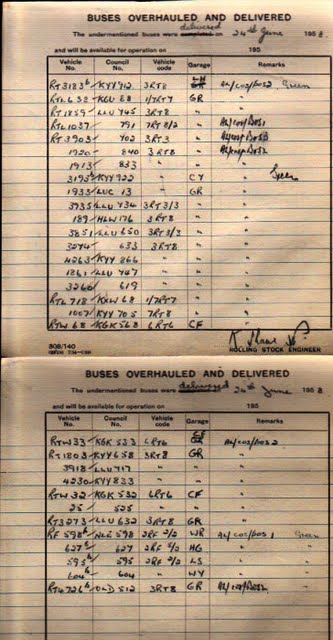 BUSES OVERHAULED AND DELIVERED
delivered
The undermentioned buses were completed on 24th June 1958
and will be available for operation on 195
Vehicle No. Council No. Vehicle code Garage Remarks
RT3183 KYY912 3RT8 AL/COS/BOS2 Green
RTL 638 KGU 68 1/7RT7 GR "
RT1859 LLU 745 3RT8 " "
RTL1037 791 7RT8/2 "
RT3903 702 3RT3 "
1920 840 3RT8 "
1913 833 " "
3195 KYY922 " CY " Green
1933 LUC 13 " GR "
3935 LLU 734 3RT3/3 " "
189 HLW176 3RT8 " "
3851 LLU 650 3RT3/3 " "
3274 633 3RT8 " "
4263 KYY 866 " " "
1861 LLU 747 " " "
3260 619 " " "
RTL 718 KXW 68 1/7RT7 " "
1007 KYY 705 7RT8 " "
RTW 68 KGK568 6RT6 CF "
808/140
ROLLING STOCK ENGINEER
BUSES OVERHAULED AND DELIVERED
delivered
The undermentioned buses were 24th June 1958
and will be available for operation on 195
Vehicle No. Council No. Vehicle code Garage Remarks
RTW33 KGK 533 6RT6 AL/COS/BOS2
RT1803 KYY658 3RT8 GR "
3918 LLU717 " " "
4230 KYY833 " " "
RTW 32 KGK532 6RT6 CF "
25 525 " " "
RT3273 LLU 632 3RT8 GR "
RF 598 NLE 598 2RF 2/2 WR AL/COS/BOS 1 Green
627 627 2RF 2/2 HG " "
595 595 2RF 2/2 LS " "
604 604 " WY " "
RT4726 OLD 512 3RT8 GR